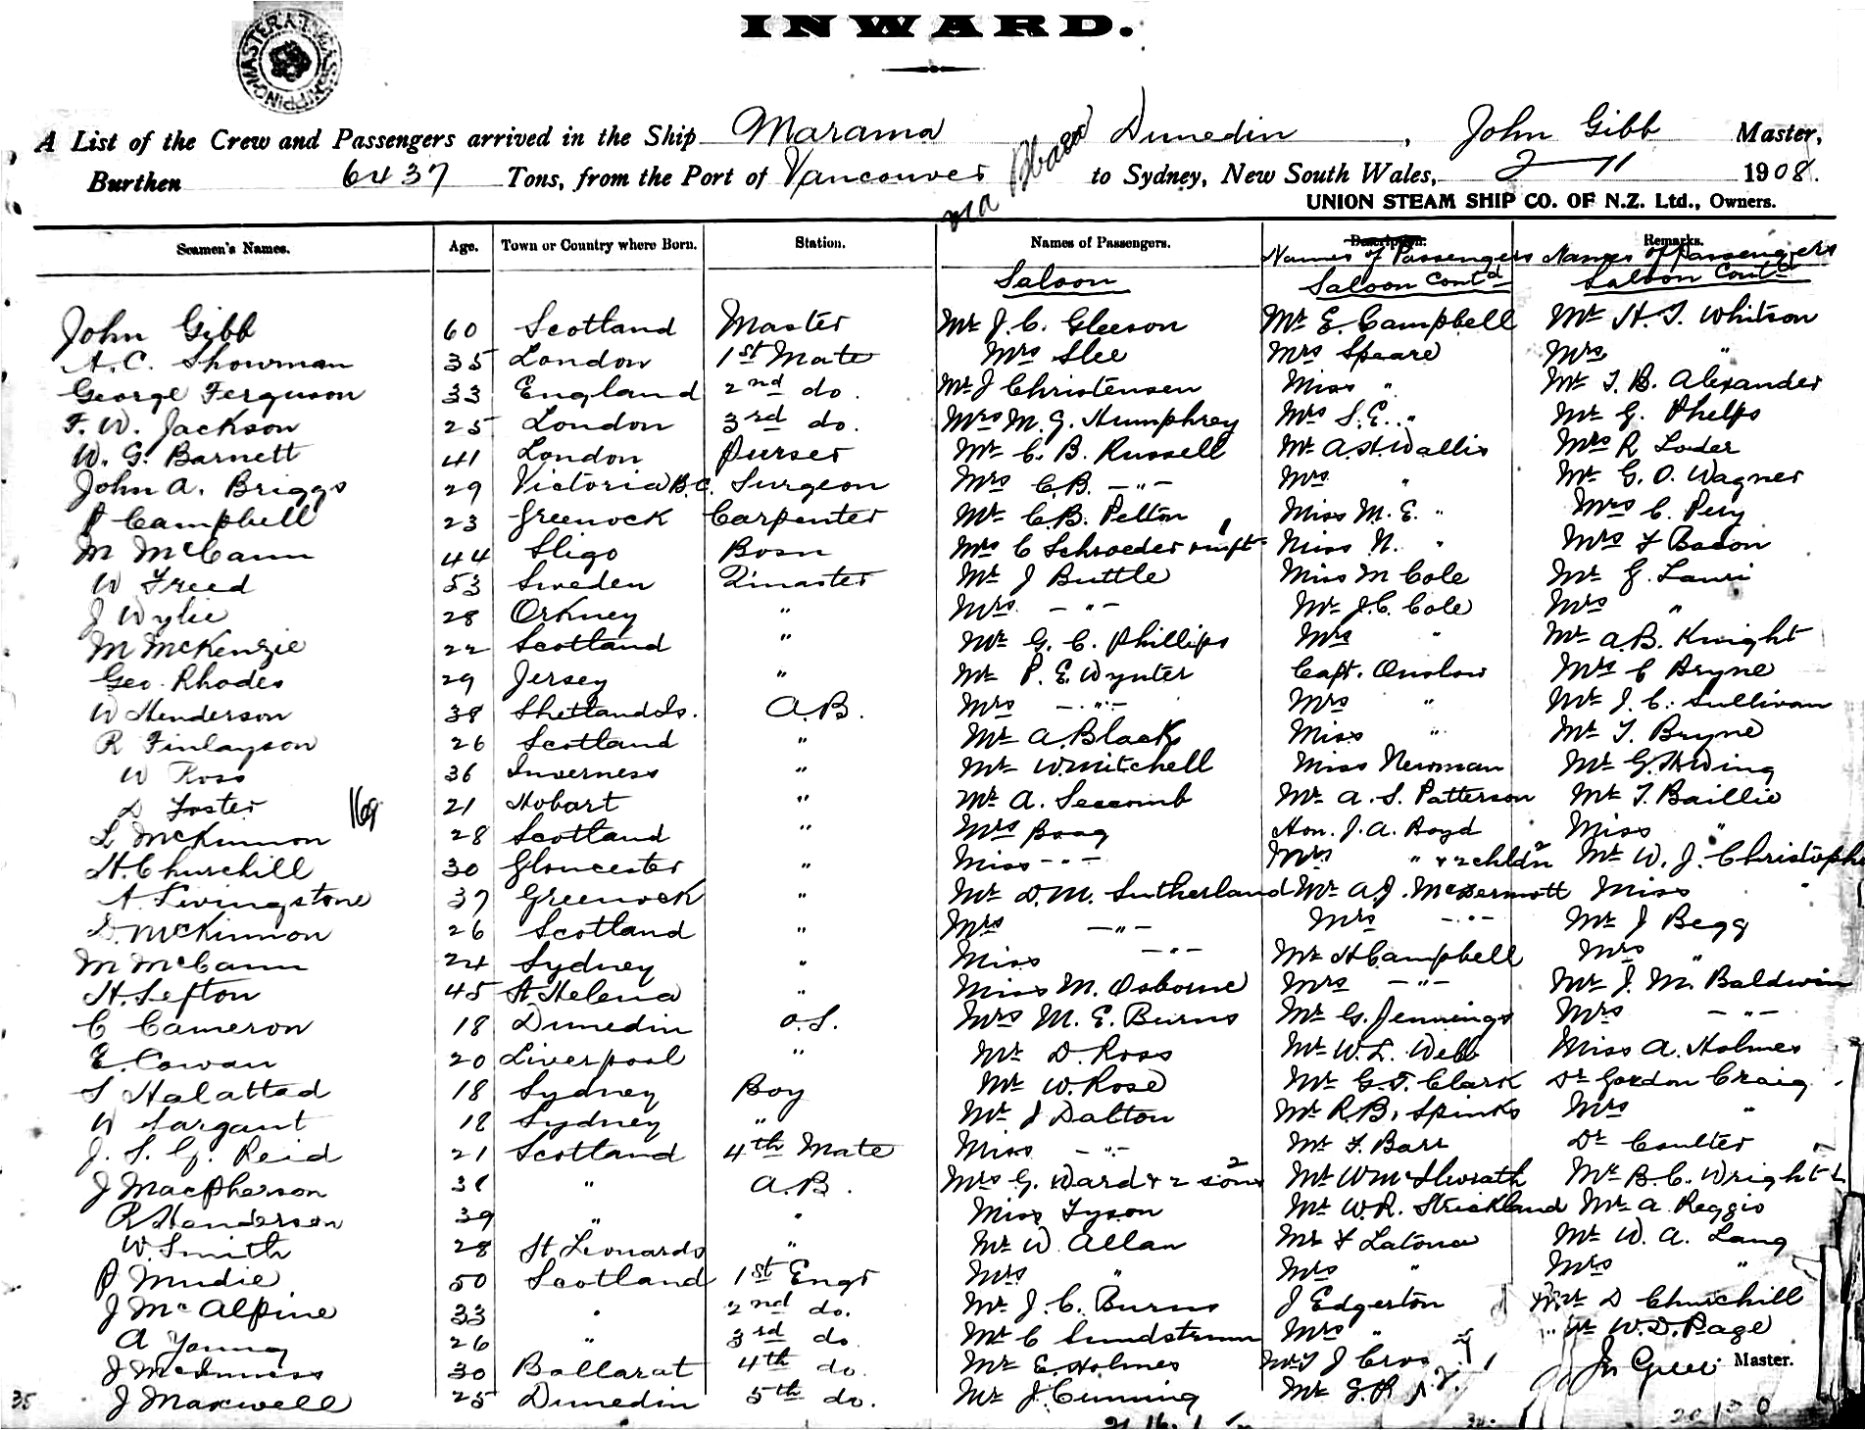 INWARD.
A List of the Crew and Passengers arrived in the Ship Marama Dunedin, John Gibb Master,
Burthen 6437 Tons, from the Port of Vancouver via to Sydney, New South Wales, 2 11 1908.
UNION STEAM SHIP CO. OF N.Z. Ltd., Owners.
Seamen's Names. Age. Town or Country where Born. Station. Names of Passengers. Description. Remarks.
Names of Passengers Names of Passengers
Saloon Saloon Cont'd Saloon Cont'd
John Gibb 60 Scotland Master Mr J. C. Gleeson Mr E. Campbell Mr H. T. Whitson
A. C. Showman 35 London 1st Mate Mrs Slee Mrs Speare Mrs "
George Ferguson 33 England 2nd do. Mr J Christensen Miss " Mr T. B. Alexander
F. W. Jackson 25 London 3rd do. Mrs M. G. Humphrey Mrs S. E. " Mr G. Phelps
W. G. Barnett 41 London Purser Mr C. B. Russell Mr A. H. Wallis Mrs R Loder
John A. Briggs 29 Victoria B.C. Surgeon Mrs C. B. - " - Mrs " Mr G. O. Wagner
P Campbell 23 Greenock Carpenter Mr C. B. Pelton Miss M. E. " Mrs C. Pery
M McCann 44 Sligo Bosn Mrs C Schroeder & inft Miss N. " Mrs F Bacon
W Freed 53 Sweden Q'master Mr J Buttle Miss M Cole Mr G. Lauri
J Wylie 28 Orkney " Mrs - " - Mr J. C. Cole Mrs "
M McKenzie 22 Scotland " Mr G. C. Phillips Mrs " Mr A. B. Knight
Geo. Rhodes 29 Jersey " Mr P. E. Wynter Capt. Onslow Mrs C Bryne
W Henderson 38 Shetland Is. A.B. Mrs - " - Mrs " Mr J. C. Sullivan
R Finlayson 26 Scotland " Mr A. Black Miss " Mr T. Bryne
W Ross 36 Inverness " Mr W Mitchell Miss Newman Mr G. Ewing
D Foster 21 Hobart " Mr A. Seccomb Mr A. S. Patterson Mr T. Baillie
L McKinnon 28 Scotland " Mrs Boag Hon. J. A. Boyd Miss "
H. Churchill 30 Gloucester " Miss - " - Mrs " & 2 chldn Mr W. J. Christophe
A. Livingstone 37 Greenock " Mr D. M. Sutherland Mr A. J. McDermott Miss "
D. McKinnon 26 Scotland " Mrs - " - Mrs - " - Mr J Begg
M McCann 24 Sydney " Miss - " - Mr H Campbell Mrs "
H. Sefton 45 St. Helena " Miss M. Osborne Mrs - " - Mr J. M. Baldwin
C Cameron 18 Dunedin O.S. Mrs M. E. Burns Mr G. Jennings Mrs - " -
E. Cowan 20 Liverpool " Mr D. Ross Mr W. L. Webb Miss A. Holmes
S Halattad 18 Sydney Boy Mr W. Rose Mr G. T. Clark Dr Gordon Craig
W Sargant 18 Sydney " Mr J Dalton Mr R. B. Spinks Mrs "
J. S. G. Reid 21 Scotland 4th Mate Miss - " - Mr F. Barr Dr Coulter
J MacPherson 38 " A.B. Mrs G. Ward & 2 sons Mr W McIlwrath Mr B. C. Wright
R Henderson 39 " " Miss Tyson Mr W. R. Strickland Mr A. Reggio
W. Smith 28 St Leonards " Mr W. Allan Mr F Latona Mr W. A. Lang
P Mudie 50 Scotland 1st Engr Mrs " Mrs " Mrs "
J McAlpine 33 " 2nd do. Mr J. C. Burns J Edgerton Mr D Churchill
A Young 26 " 3rd do. Mr C Sundstrum Mrs " Mr W. D. Page
J McInness 30 Ballarat 4th do. Mr E. Holmes Mr J Cros Master.
35 J Maxwell 25 Dunedin 5th do. Mr J. Cunning Mr